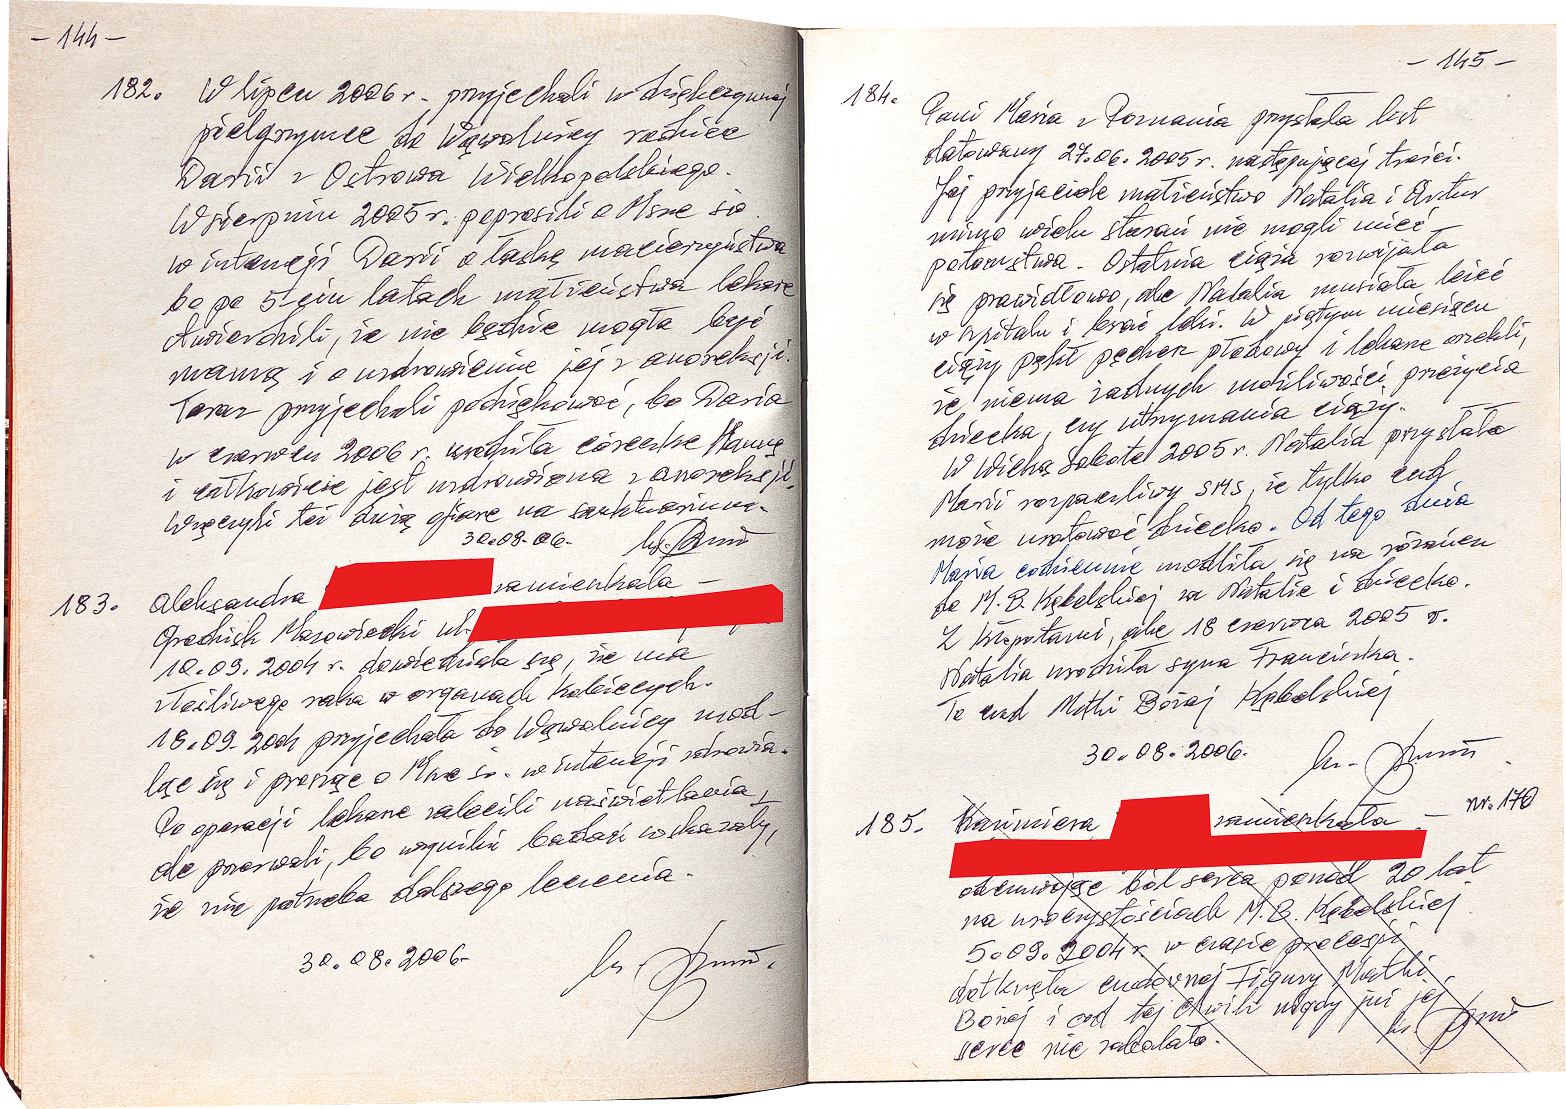 - 144 -
182. W lipcu 2006 r. przyjechali w dziękczynnej
pielgrzymce do Wąwolnicy rodzice
Darii z Ostrowa Wielkopolskiego.
W sierpniu 2005 r. poprosili o Mszę św.
w intencji Darii o łaskę macierzyństwa
bo po 5-ciu latach małżeństwa lekarze
stwierdzili, że nie będzie mogła być
mamą i o uzdrowienie jej z anoreksji.
Teraz przyjechali podziękować, bo Daria
w czerwcu 2006 r. urodziła córeczkę Hannę
i całkowicie jest uzdrowiona z anoreksji.
Wręczyli też dużą ofiarę na sanktuarium.
30.08.06. ks.
183. Aleksandra zamieszkała -
Grodzisk Mazowiecki ul.
10.09.2004 r. dowiedziała się, że ma
złośliwego raka w organach kobiecych.
18.09.2004 przyjechała do Wąwolnicy mod-
ląc się i prosząc o Mszę św. w intencji zdrowia.
Po operacji lekarze zalecili naświetlania,
ale przerwali, bo wyniki badań wskazały,
że nie potrzeba dalszego leczenia.
30.08.2006 ks.
- 145 -
184. Pani Maria z Poznania przysłała list
datowany 27.06.2005 r. następującej treści.
Jej przyjaciele małżeństwo Natalia i Artur
mimo wielu starań nie mogli mieć
potomstwa. Ostatnia ciąża rozwijała
się prawidłowo, ale Natalia musiała leżeć
w szpitalu i brać leki. W piątym miesiącu
ciąży pękł pęcherz płodowy i lekarze orzekli,
że niema żadnych możliwości przeżycia
dziecka, czy utrzymania ciąży.
W Wielką Sobotę 2005 r. Natalia przysłała
Marii rozpaczliwy SMS, że tylko cud
może uratować dziecko. Od tego dnia
Maria codziennie modliła się na różańcu
do M. B. Kębelskiej za Natalię i dziecko.
Z kłopotami, ale 18 czerwca 2005 r.
Natalia urodziła syna Franciszka.
To cud Matki Bożej Kębelskiej
30.08.2006. ks.
nr. 170
185. Kazimiera zamieszkała -
odczuwając ból serca ponad 20 lat
na uroczystościach M. B. Kębelskiej
5.09.2004 r. w czasie procesji
dotknęła cudownej Figury Matki
Bożej i od tej chwili nigdy już jej
serce nie zabolało. ks.